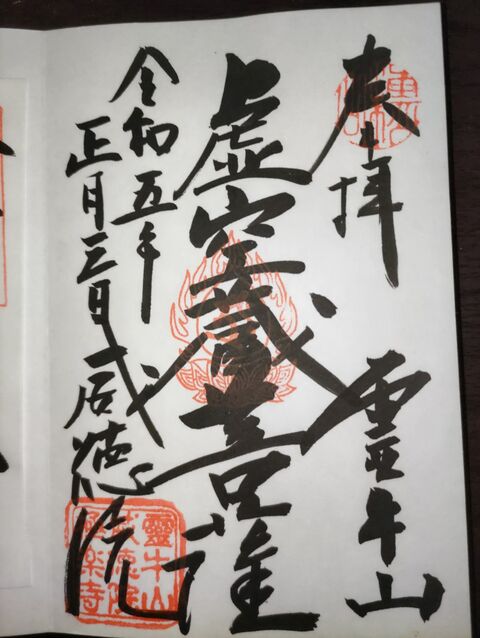 奉拝
霊牛山
虚空蔵菩薩
令和五年
正月三日
威徳院
靈牛山
威徳院
極楽寺